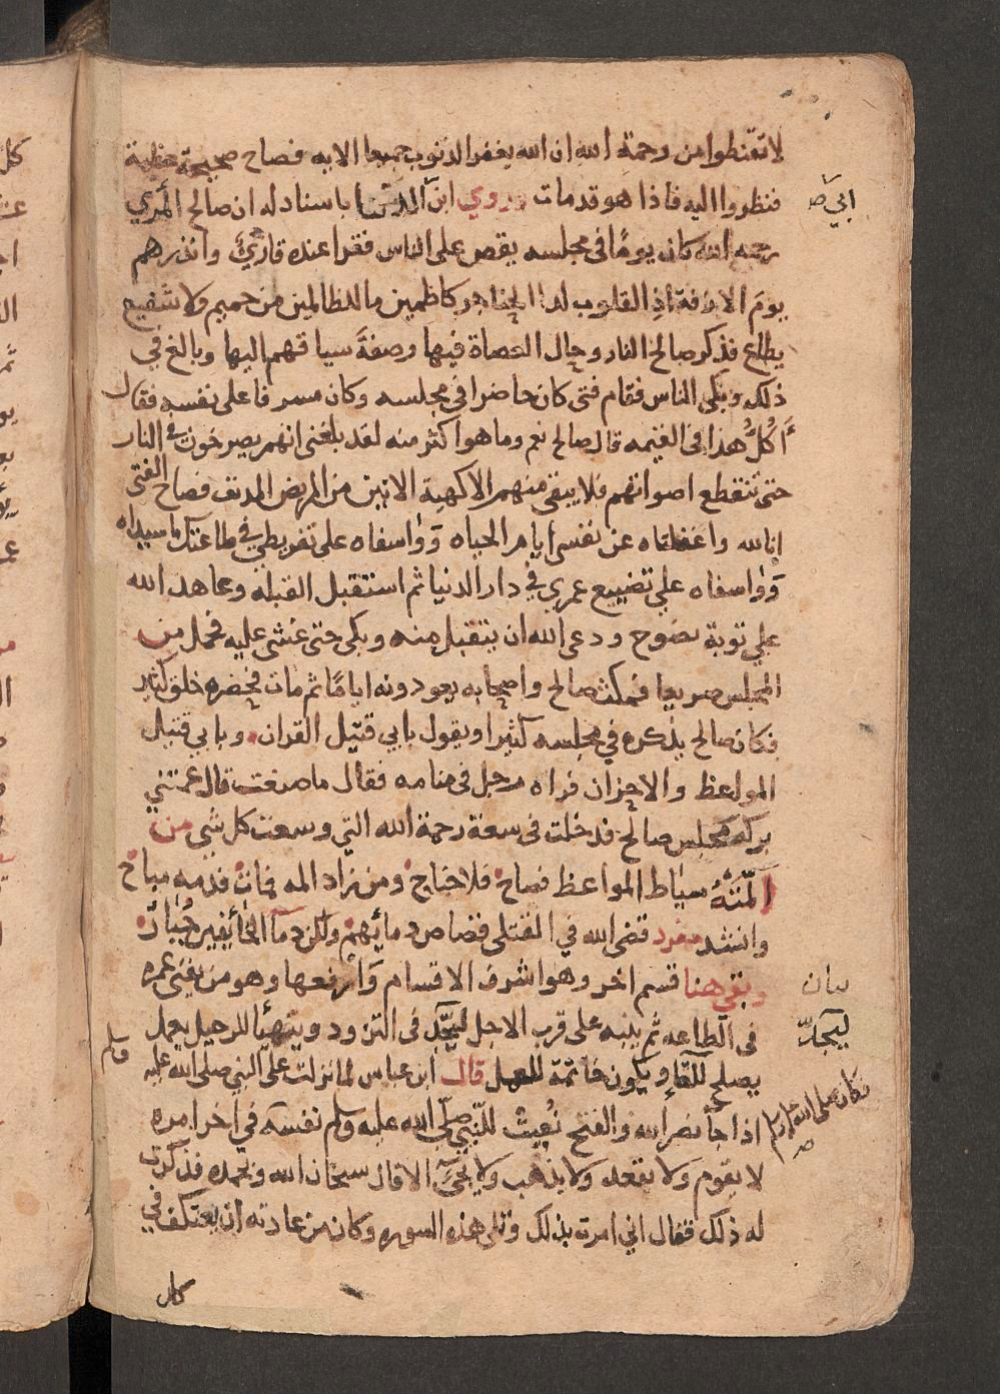 لا تقنطوا من رحمة الله ان الله يغفر الذنوب جميعا الايه فصاح صيحة عظيمة
فنظروا اليه فاذا هو قد مات وروي ابن الدنيا باسناد له ان صالح المري
ابي صح
رحمه الله كان يومًا فى مجلسه يقص على الناس فقرا عنده قارئ وانذرهم
يوم الازفة اذ القلوب لدا الحناجر كاظمين ما للظالمين من حميم ولا شفيع
يطاع فذكر صالح النار وحال العصاة فيها وصفة سياقهم اليها وبالغ في
ذلك وبكى الناس فقام فتى كان حاضرا فى مجلسه وكان مسرفا على نفسه فقال
أكُلُّ هذا فى القيمه قال صالح نعم وما هو اكثر منه لقد بلغنى انهم يصرخون فى النار
حتى تنقطع اصواتهم فلا يبقى منهم الا كهية الانين من المريض المدنف فصاح الفتى
إنا لله واغفلتاه عن نفسى أيام الحياه وواسفاه على تفريطي في طاعتك يا سيداه
وواسفاه علي تضييع عمري في دار الدنيا ثم استقبل القبله وعاهد الله
علي توبة نصوح ودعى الله ان يتقبل منه وبكى حتى غشى عليه فحمل من
المجلس صريعا فمكث صالح واصحابه يعودونه ايامًا ثم مات فحضره خلق كثير
فكان صالح يذكره في مجلسه كثيرا ويقول بابي قتيل القران وبابي قتيل
المواعظ والاحزان فراه رجل فى منامه فقال ما صنعت قال عمتني
بركه مجلس صالح فدخلت فى سعة رحمة الله التي وسعت كل شي من
المَتْهُ سياط المواعظ فصاح فلا جناح ومن زاد المه فمات فدمه مباح
وانشد مفرد قضى الله في القتلى قصاص دمائهم ولكن دمآ العاشقين جُبارُ
وبقي هنا قسم اخر وهو اشرف الاقسام وأرفعها وهو من يفنى عمره
بيان
فى الطاعه ثم ينبه على قرب الاجل ليجدّ فى التزود ويتهيأ للرحيل بعمل
ليجدّ
يصلح للقاء ويكون خاتمة للعمل قال ابن عباس لما نزلت على النبي صلى الله عليه
وسلم
اذا جآ نصر الله والفتح نُعِيتْ للنّبي صلى الله عليه وسلم نفسه في اخر امره
فكان صلى الله عليه وسلم صح
لا يقوم ولا يقعد ولا يذهب ولا يجئ الا قال سبحان الله وبحمده فذكرت
له ذلك فقال اني امرت بذلك وتلى هذه السوره وكان من عادته ان يعتكف في
كل